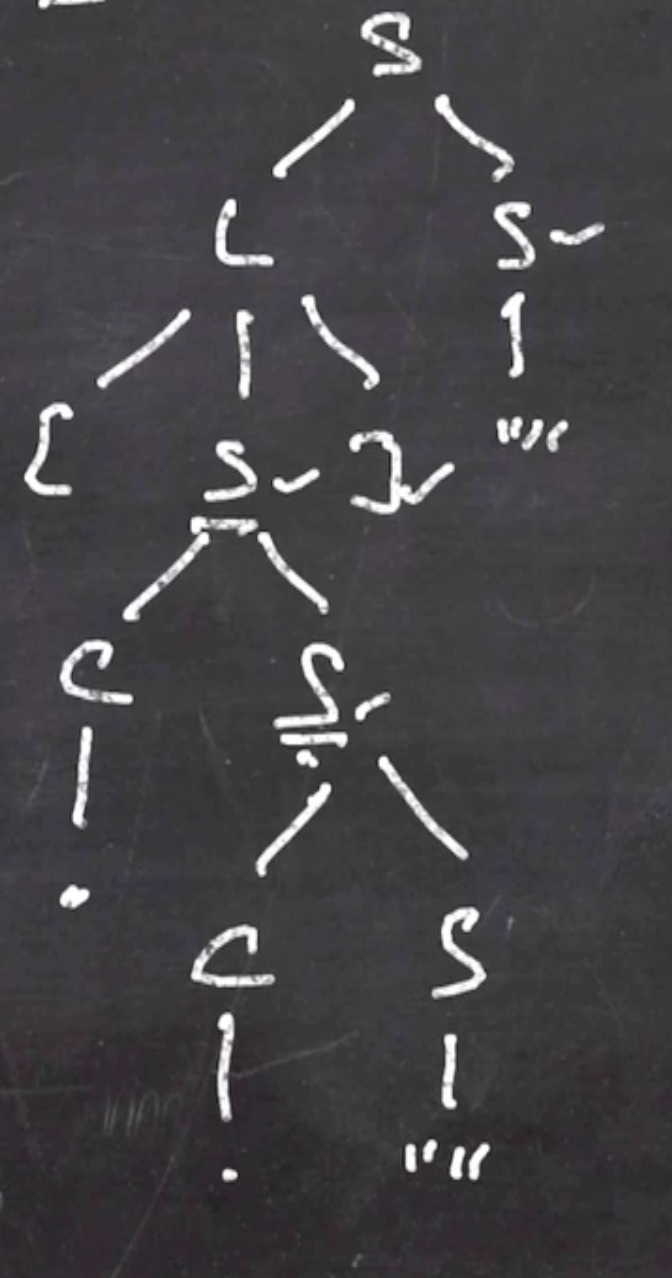 S
C S
[ S ] ""
C S
.
C S
. ""